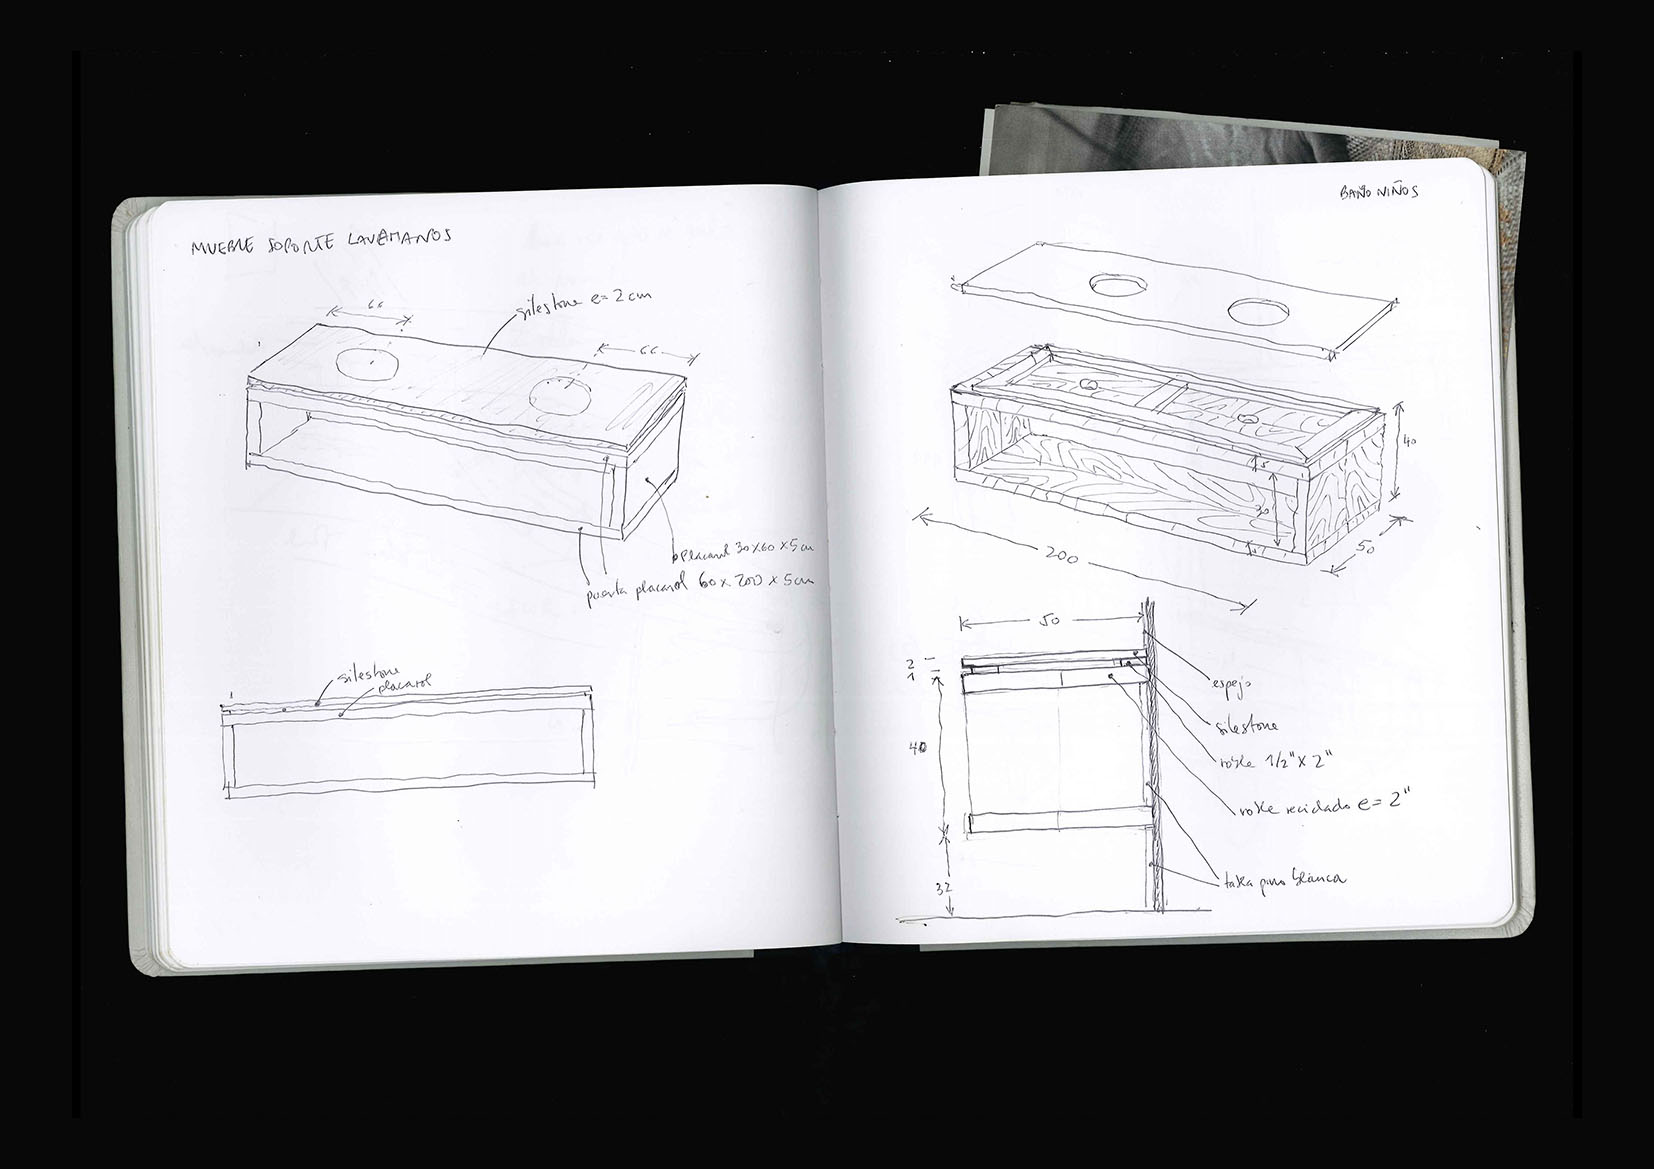 MUEBLE SOPORTE LAVAMANOS
66
silestone e=2cm
66
placarol 30x60x5cm
puerta placarol 60x200x5cm
silestone
placarol
BAÑO NIÑOS
40
5
30
5
200
50
50
2
1
espejo
silestone
40
roble 1/2"x2"
roble reciclado e=2"
32
tabla pino blanca